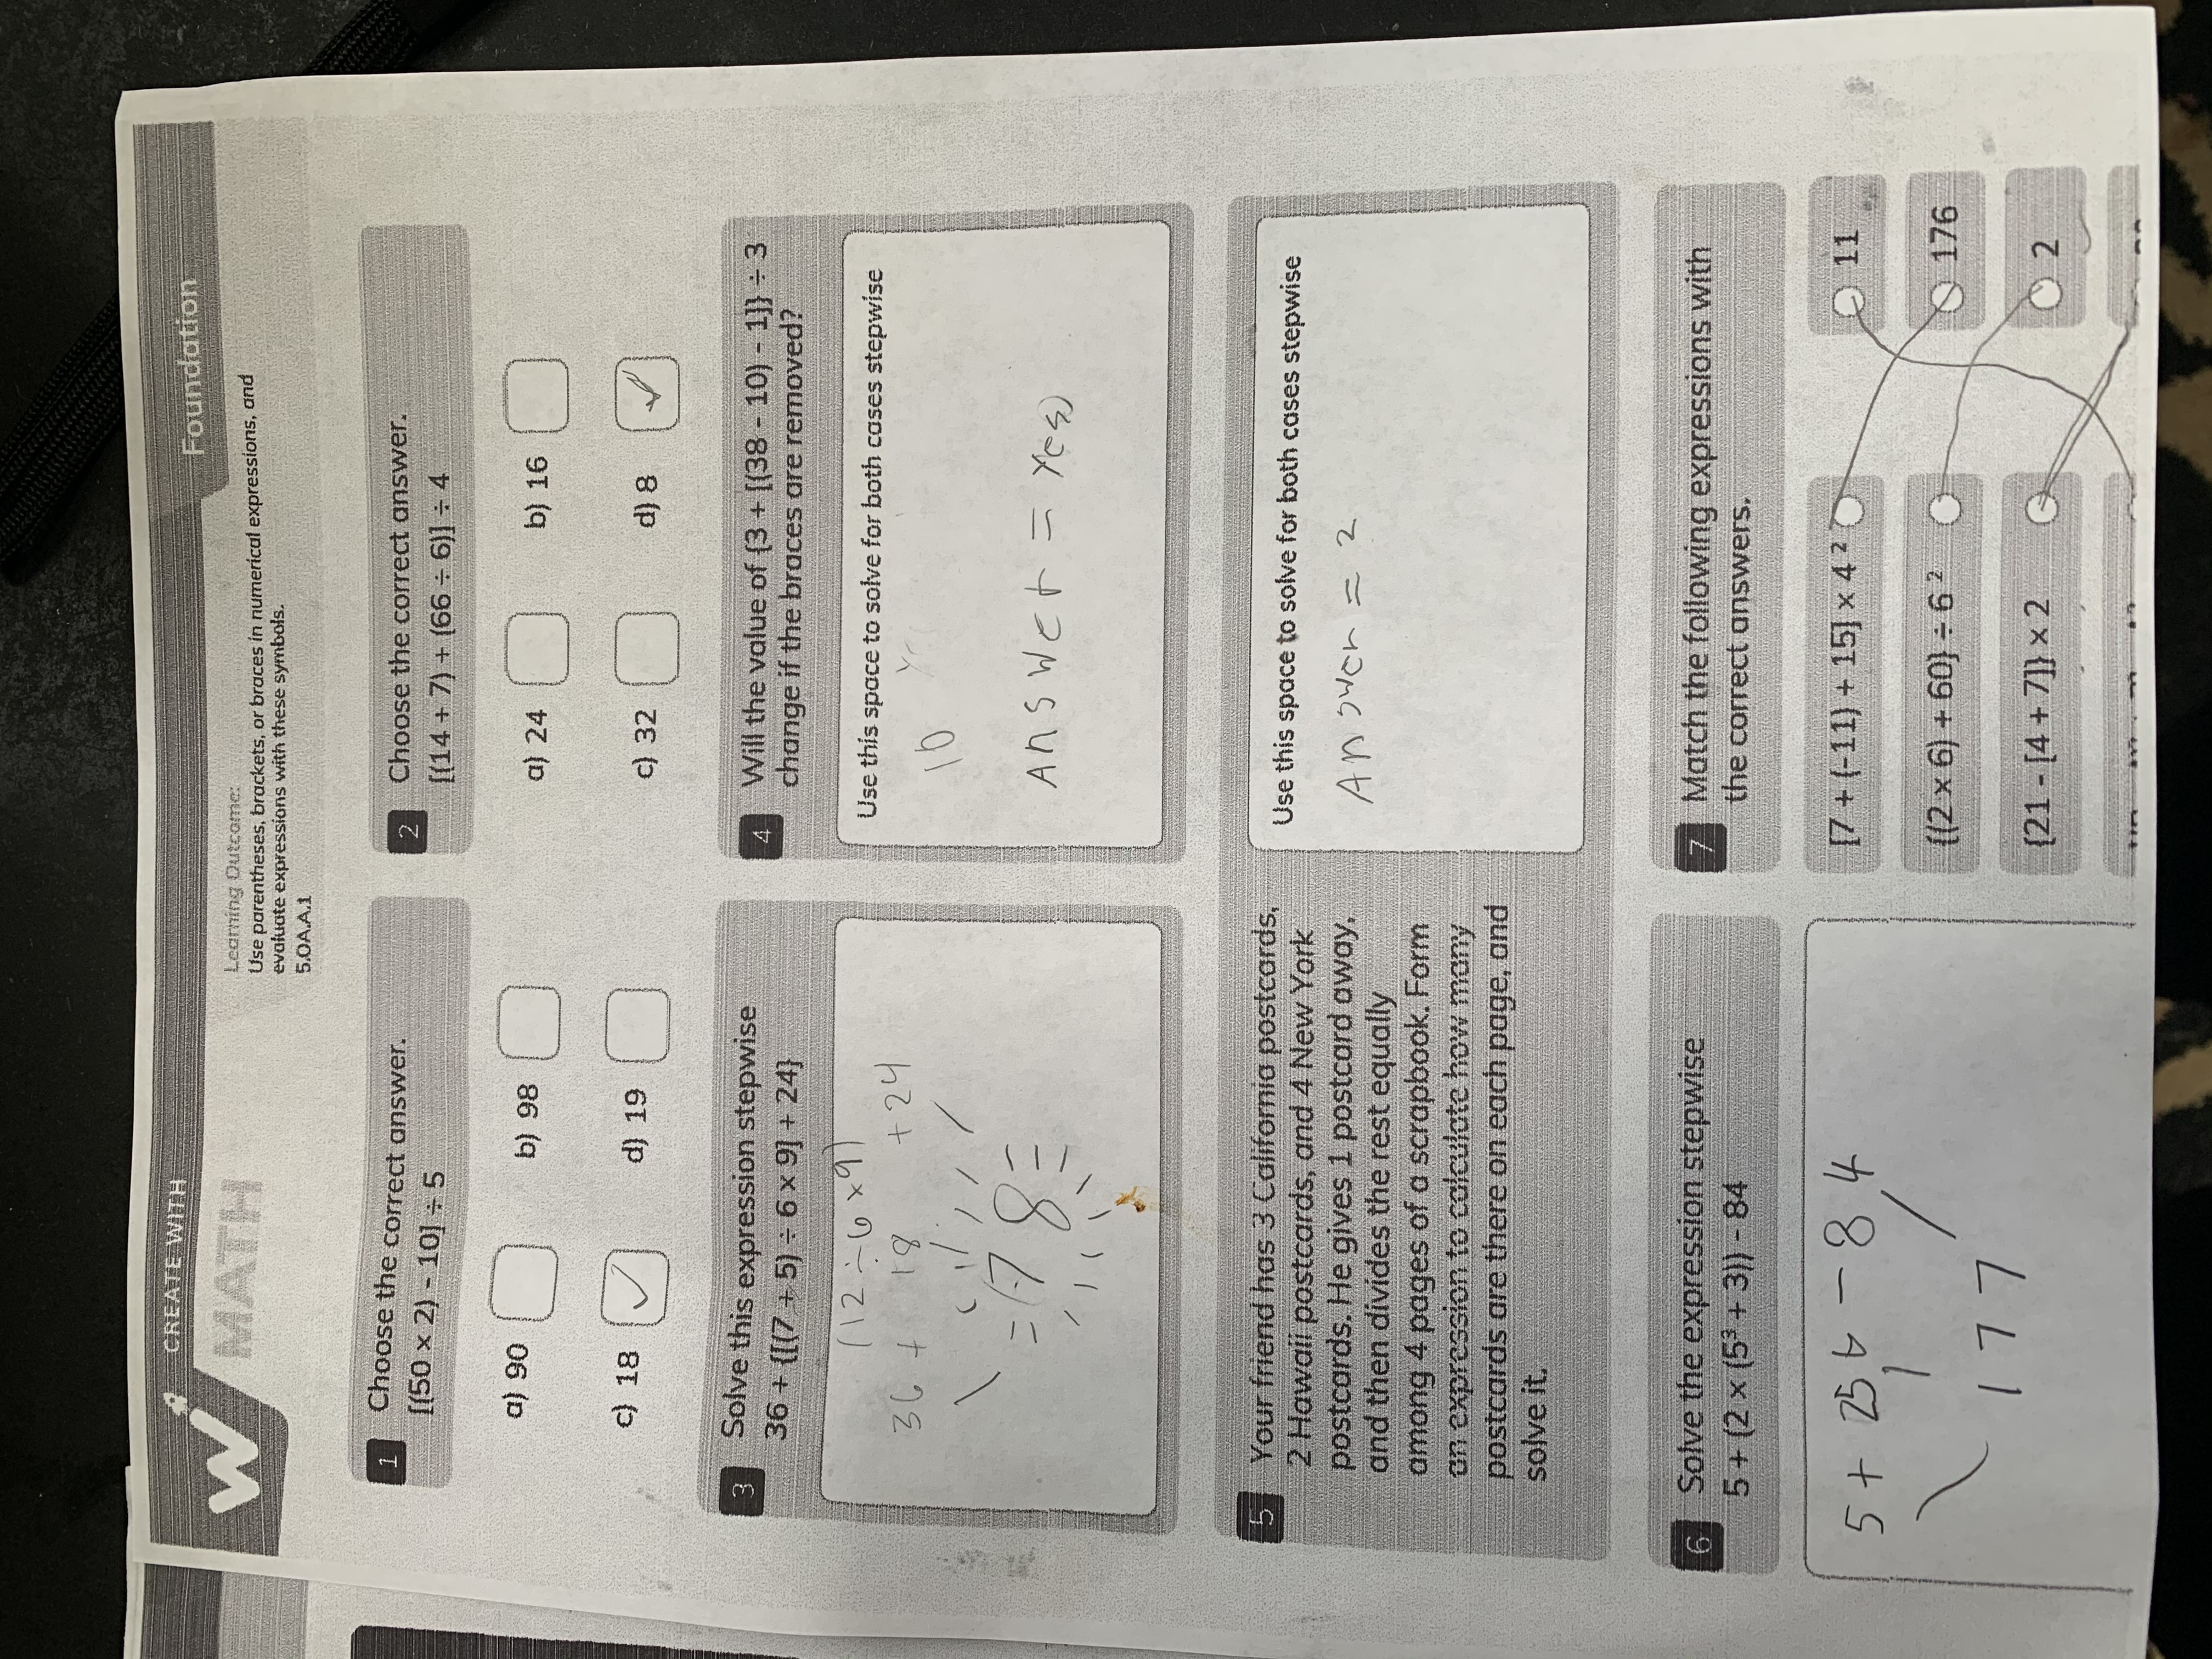 CREATE WITH
MATH
Foundation
Learning Outcome:
Use parentheses, brackets, or braces in numerical expressions, and
evaluate expressions with these symbols.
5.OA.A.1
1 Choose the correct answer.
[(50 × 2) - 10] ÷ 5
a) 90
b) 98
c) 18 ✓
d) 19
2 Choose the correct answer.
[(14 + 7) + (66 ÷ 6)] ÷ 4
a) 24
b) 16
c) 32
d) 8 ✓
3 Solve this expression stepwise
36 + {[(7 + 5) ÷ 6 x 9] + 24}
(12 ÷ 6 x 9)
36 + 18 + 24
78
4 Will the value of {3 + [(38 - 10) - 1]} ÷ 3
change if the braces are removed?
Use this space to solve for both cases stepwise
10
Answer = Yes
5 Your friend has 3 California postcards,
2 Hawaii postcards, and 4 New York
postcards. He gives 1 postcard away,
and then divides the rest equally
among 4 pages of a scrapbook. Form
an expression to calculate how many
postcards are there on each page, and
solve it.
Use this space to solve for both cases stepwise
Answer = 2
6 Solve the expression stepwise
5 + (2 × (5³ + 3)) - 84
5 + 256 - 84
177
7 Match the following expressions with
the correct answers.
[7 + (-11) + 15] × 4²
{(2 × 6) + 60} ÷ 6²
{21 - [4 + 7]} × 2
11
176
2